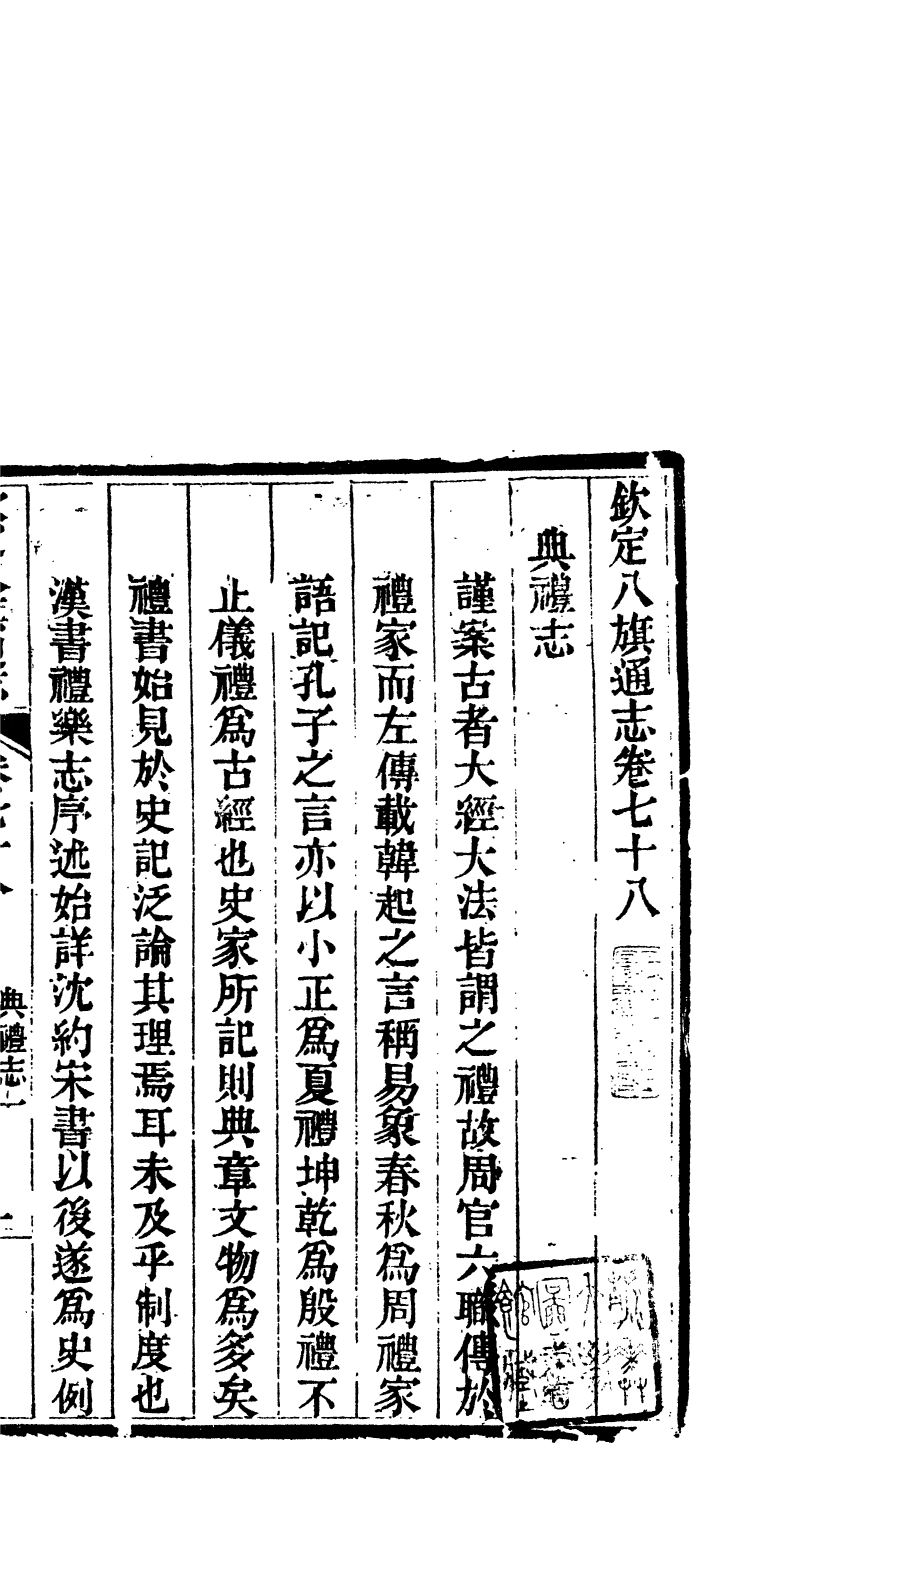 欽定八旗通志卷七十八
典禮志
謹案古者大經大法皆謂之禮故周官六職傳於
禮家而左傳載韓起之言稱易象春秋為周禮家
語記孔子之言亦以小正為夏禮坤乾為殷禮不
止儀禮為古經也史家所記則典章文物為多矣
禮書始見於史記泛論其理焉耳未及乎制度也
漢書禮樂志序述始詳沈約宋書以後遂為史例
典禮志一